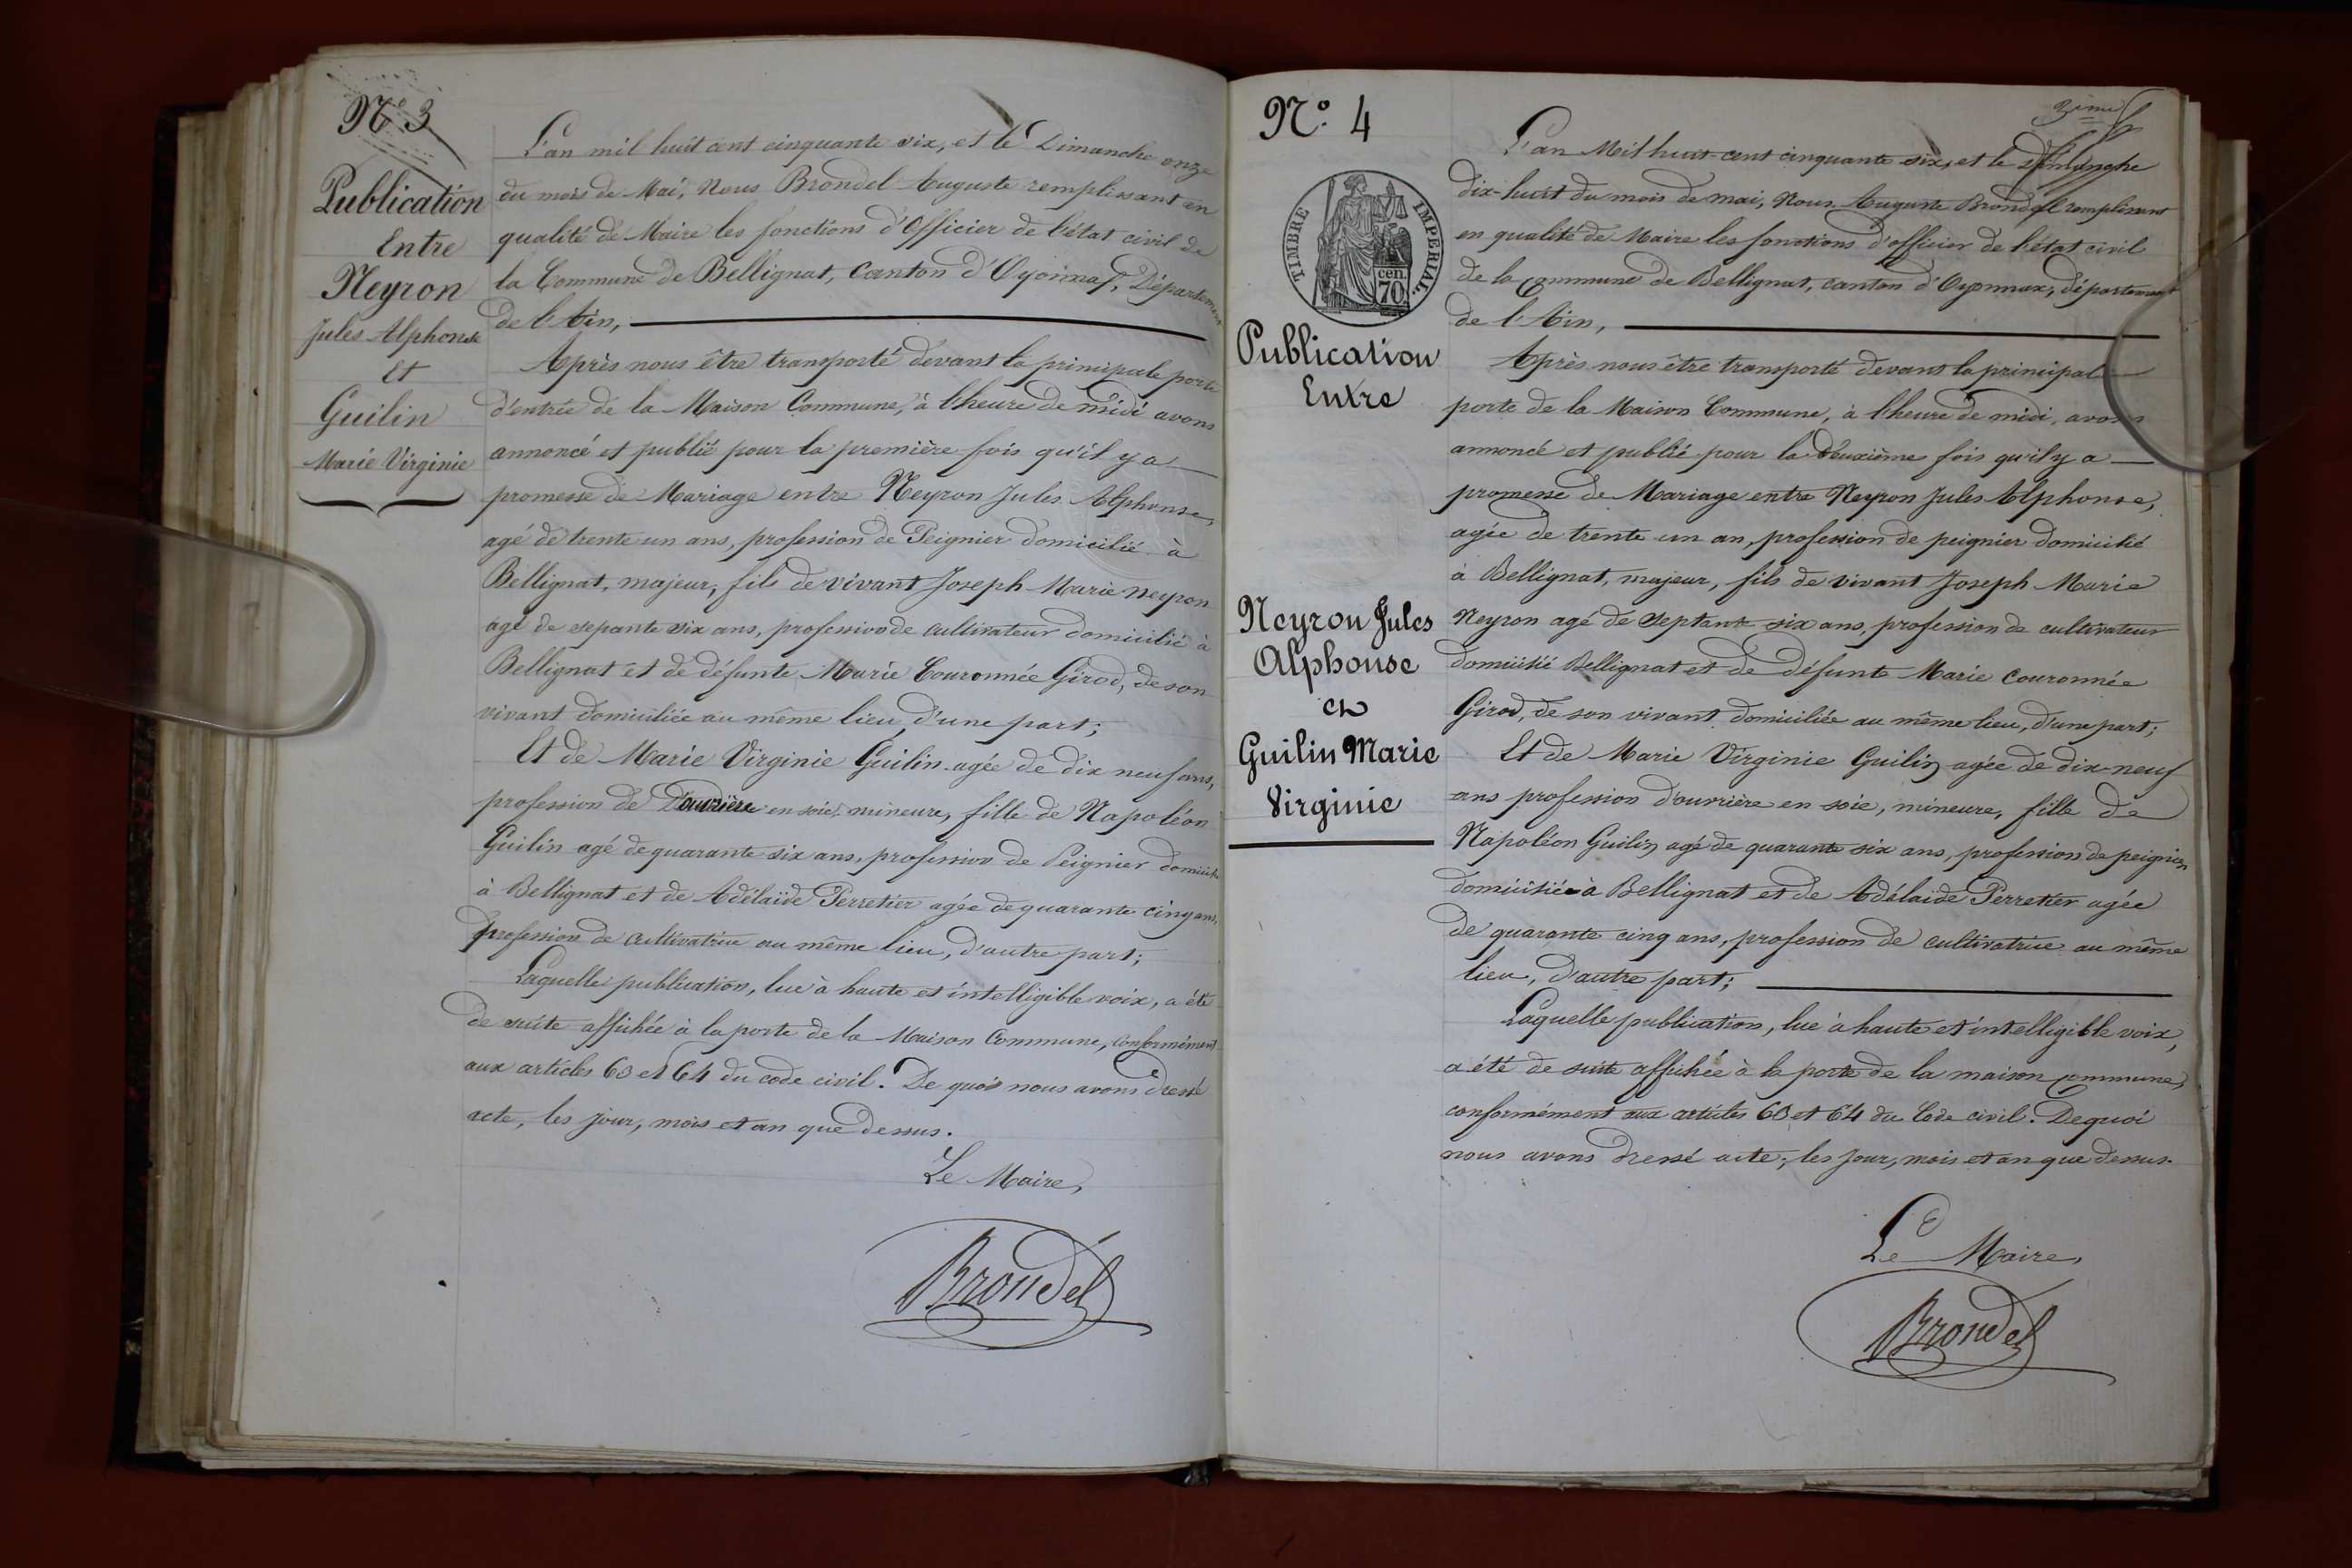 N° 3
Publication
Entre
Neyron
Jules Alphonse
Et
Guilin
Marie Virginie
L'an mil huit cent cinquante six, et le Dimanche onze
du mois de Mai, Nous Brondel Auguste remplissant en
qualité de Maire les fonctions d'Officier de l'état civil de
la Commune de Bellignat, Canton d'Oyonnax, Département
de l'Ain,
Après nous être transporté devant la principale porte
d'entrée de la Maison Commune, à l'heure de midi avons
annoncé et publié pour la première fois qu'il y a
promesse de Mariage entre Neyron Jules Alphonse,
agé de trente un ans, profession de Peignier domicilié à
Bellignat, majeur, fils de vivant Joseph Marie Neyron
agé de sepante six ans, profession de cultivateur domicilié à
Bellignat et de défunte Marie Couronnée Girod, de son
vivant domiciliée au même lieu, d'une part;
Et de Marie Virginie Guilin agée de dix neuf ans,
profession de D'ouvrière en soie, mineure, fille de Napoléon
Guilin agé de quarante six ans, profession de Peignier domicilié
à Bellignat et de Adélaïde Perretier agée de quarante cinq ans,
profession de cultivatrice au même lieu, d'autre part;
Laquelle publication, lue à haute et intelligible voix, a été
de suite affichée à la porte de la Maison Commune, conformément
aux articles 63 et 64 du code civil. De quoi nous avons dressé
acte, les jour, mois et an que dessus.
Le Maire,
Brondel
N° 4
TIMBRE IMPERIAL
cen.
70
Publication
Entre
Neyron Jules
Alphonse
et
Guilin Marie
Virginie
L'an Mil huit-cent cinquante six, et le Dimanche
dix-huit du mois de mai, Nous Auguste Brondel remplissant
en qualité de Maire les fonctions d'officier de l'état civil
de la Commune de Bellignat, canton d'Oyonnax, département
de l'Ain,
Après nous être transporté devant la principale
porte de la Maison Commune, à l'heure de midi, avons
annoncé et publié pour la deuxième fois qu'il y a
promesse de Mariage entre Neyron Jules Alphonse,
agée de trente un an, profession de peignier domicilié
à Bellignat, majeur, fils de vivant Joseph Marie
Neyron agé de septante six ans, profession de cultivateur
domicilié Bellignat et de défunte Marie Couronnée
Girod, de son vivant domiciliée au même lieu, d'une part;
Et de Marie Virginie Guilin agée de dix-neuf
ans profession d'ouvrière en soie, mineure, fille de
Napoléon Guilin agé de quarante six ans, profession de peignier
domicilié à Bellignat et de Adélaïde Perretier agée
de quarante cinq ans, profession de cultivatrice au même
lieu, d'autre part;
Laquelle publication, lue à haute et intelligible voix,
a été de suite affichée à la porte de la maison commune,
conformément aux articles 63 et 64 du Code civil. De quoi
nous avons dressé acte, les jour, mois et an que dessus.
Le Maire,
Brondel